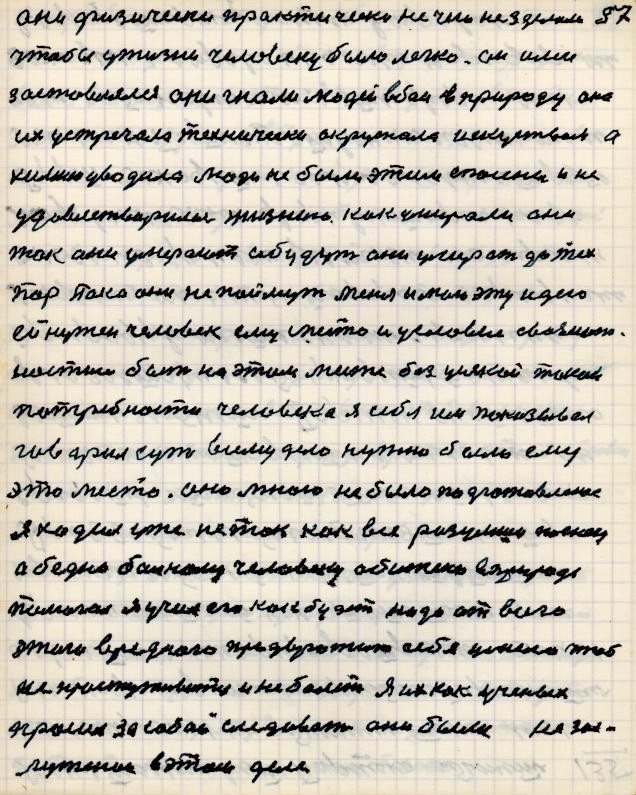 они физически практически не чно не зделали 87
чтобы у жизни человеку было легко. он или
заставлялся они гнали людей в бой в природу она
их устречала технически окружала искуством а
химию уводила люди не были этим спасени и не
удовлетворилис жизнию. как умирали они
так они умерают и будут они умират до тех
пор пока они не поймут меня и мою эту идею
ей нужен человек ему место и условея
быт на этом месте без усякой такой
потребности человека я себя им показывал
говарил сут в чему дело нужно было ему
это место. оно мною не было подготовление
я ходил уже не так как все разумно
а бедно болному человеку обижено в природе
помогал я учил его как будет надо от всего
этого вредного предвротит себя умело чтоб
не простуживатся и не болет я их как ученых
просил за собой следоват они были не зас-
лужение в этом деле